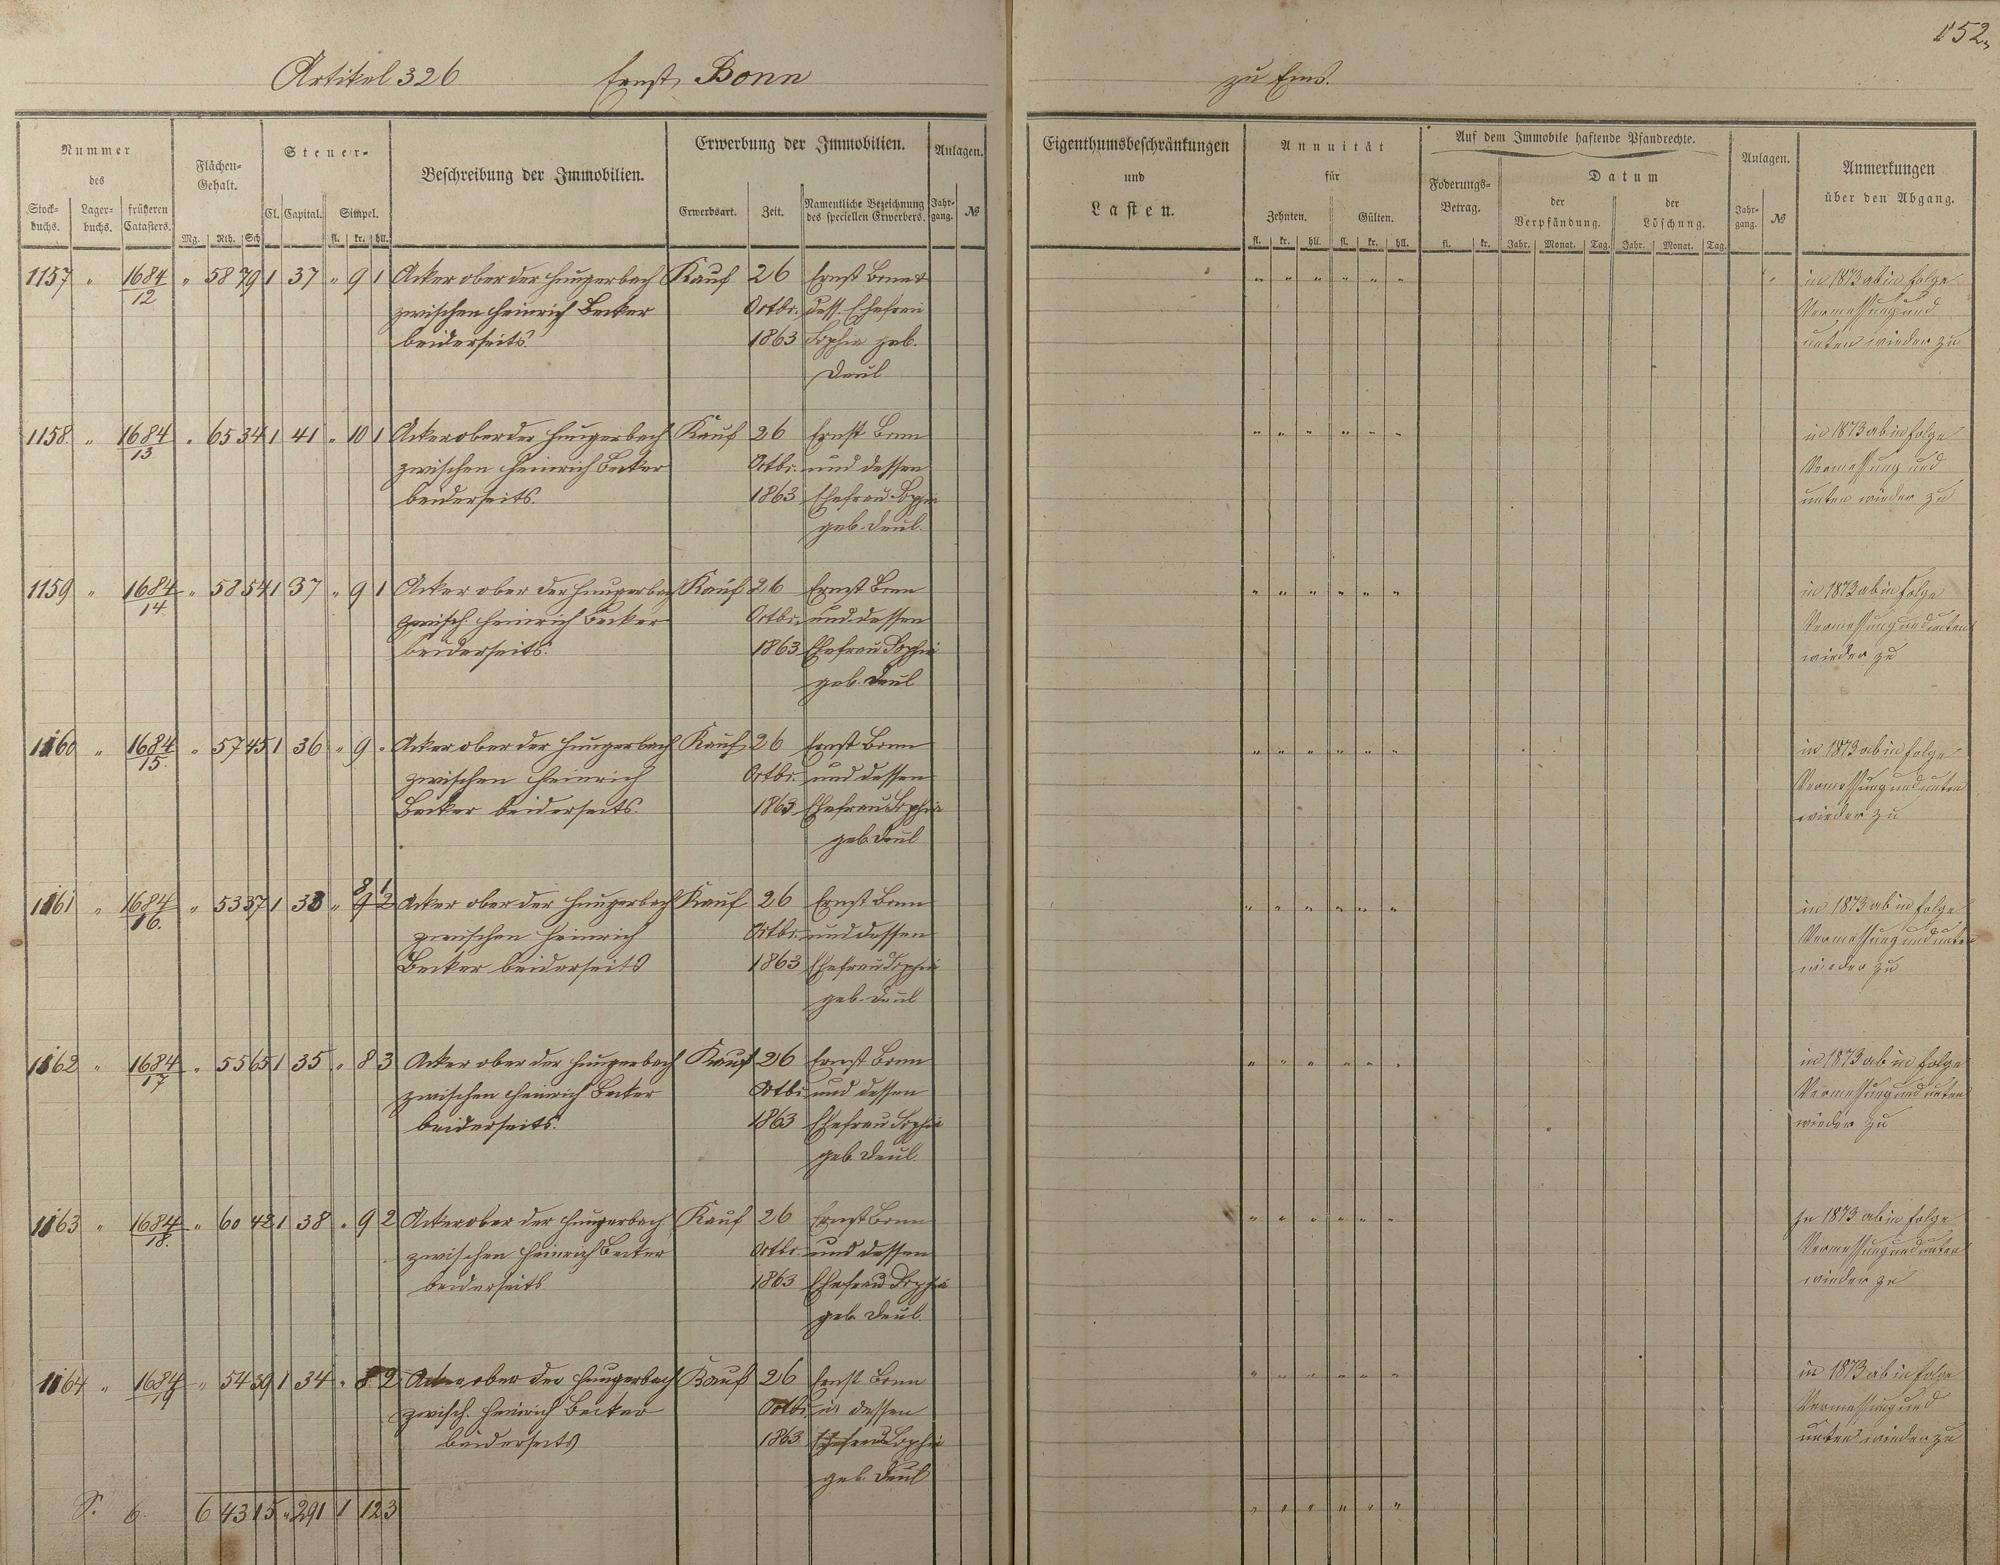 152.
Artikel 326 Ernst Bonn zu Ems.
Nummer des
Stock-buchs. Lager-buchs. früheren Catasters.
Flächen-Gehalt.
Mg. Rth. Sch
Steuer-
Cl. Capital. Simpel.
fl. kr. hll.
Beschreibung der Immobilien.
Erwerbung der Immobilien.
Erwerbsart. Zeit. Namentliche Bezeichnung des speciellen Erwerbers.
Anlagen.
Jahr-gang. №
Eigenthumsbeschränkungen und Lasten.
Annuität für
Zehnten. Gülten.
fl. kr. hll. fl. kr. hll.
Auf dem Immobile haftende Pfandrechte.
Foderungs-Betrag.
fl. kr.
Datum
der Verpfändung. der Löschung.
Jahr. Monat. Tag. Jahr. Monat. Tag.
Anlagen.
Jahr-gang. №
Anmerkungen über den Abgang.
1157 " 1684/12 " 58 79 1 37 " 9 1 Acker ober der Hungerbach Kauf 26 Ernst Bonn & " " " " " " in 1873 ab in Folge
zwischen Heinrich Becker Octbr. dess. Ehefrau Vermessung und
beiderseits. 1863 Sophie geb. unten wieder zu
Deul
1158. " 1684/13 " 65 34 1 41 " 10 1 Acker ober der Hungerbach Kauf 26 Ernst Bonn " " " " " " in 1873 ab in Folge
zwischen Heinrich Becker Octbr. und dessen Vermessung und
beiderseits. 1863 Ehefrau Sophie unten wieder zu
geb. Deul.
1159 " 1684/14 " 58 54 1 37 " 9 1 Acker ober der Hungerbach Kauf 26 Ernst Bonn " " " " " " in 1873 ab in Folge
zwisch. Heinrich Becker Octbr. und dessen Vermessung und unten
beiderseits. 1863 Ehefrau Sophie wieder zu
geb. Deul
1160 " 1684/15. " 57 45 1 36 " 9 " Acker ober der Hungerbach Kauf 26 Ernst Bonn " " " " " " in 1873 ab in Folge
zwischen Heinrich Octbr. und dessen Vermessung und unten
Becker beiderseits. 1863 Ehefrau Sophie wieder zu
geb. Deul
8 1
1161 " 1684/16. " 53 37 1 33 " 9 2 Acker ober der Hungerbach Kauf 26 Ernst Bonn " " " " " " in 1873 ab in Folge
zwischen Heinrich Octbr. und dessen Vermessung und unten
Becker beiderseits 1863 Ehefrau Sophie wieder zu
geb. Deul
1162 " 1684/17 " 55 65 1 35 " 8 3 Acker ober der Hungerbach Kauf 26 Ernst Bonn " " " " " " in 1873 ab in Folge
zwischen Heinrich Becker Octbr. und dessen Vermessung und unten
beiderseits. 1863 Ehefrau Sophie wieder zu
geb. Deul.
1163 " 1684/18. " 60 42 1 38 " 9 2 Acker ober der Hungerbach Kauf 26 Ernst Bonn " " " " " " In 1873 ab in Folge
zwischen Heinrich Becker Octbr. und dessen Vermessung und unten
beiderseits 1863 Ehefrau Sophie wieder zu
geb. Deul.
1164 " 1684/19 " 54 39 1 34 " 8 2 Acker ober der Hungerbach Kauf 26 Ernst Bonn " " " " " " in 1873 ab in Folge
zwisch. Heinrich Becker Octbr. u. dessen Vermessung und
beiderseits 1863 Ehefrau Sophie unten wieder zu
geb. Deul
S. 6. 6 43 15 " 291 1 12 3 " " " " " "